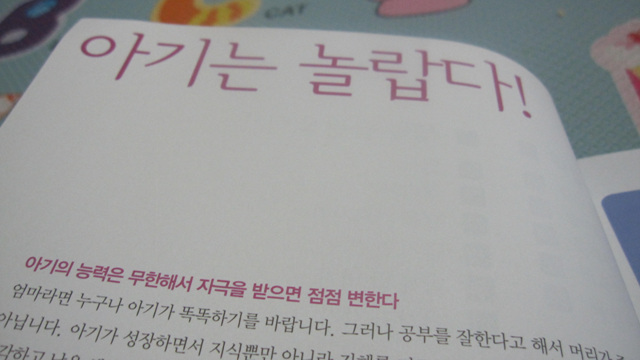 CAT
아기는 놀랍다!
아기의 능력은 무한해서 자극을 받으면 점점 변한다
엄마라면 누구나 아기가 똑똑하기를 바랍니다. 그러나 공부를 잘한다고 해서 머리가
아닙니다. 아기가 성장하면서 지식뿐만 아니라